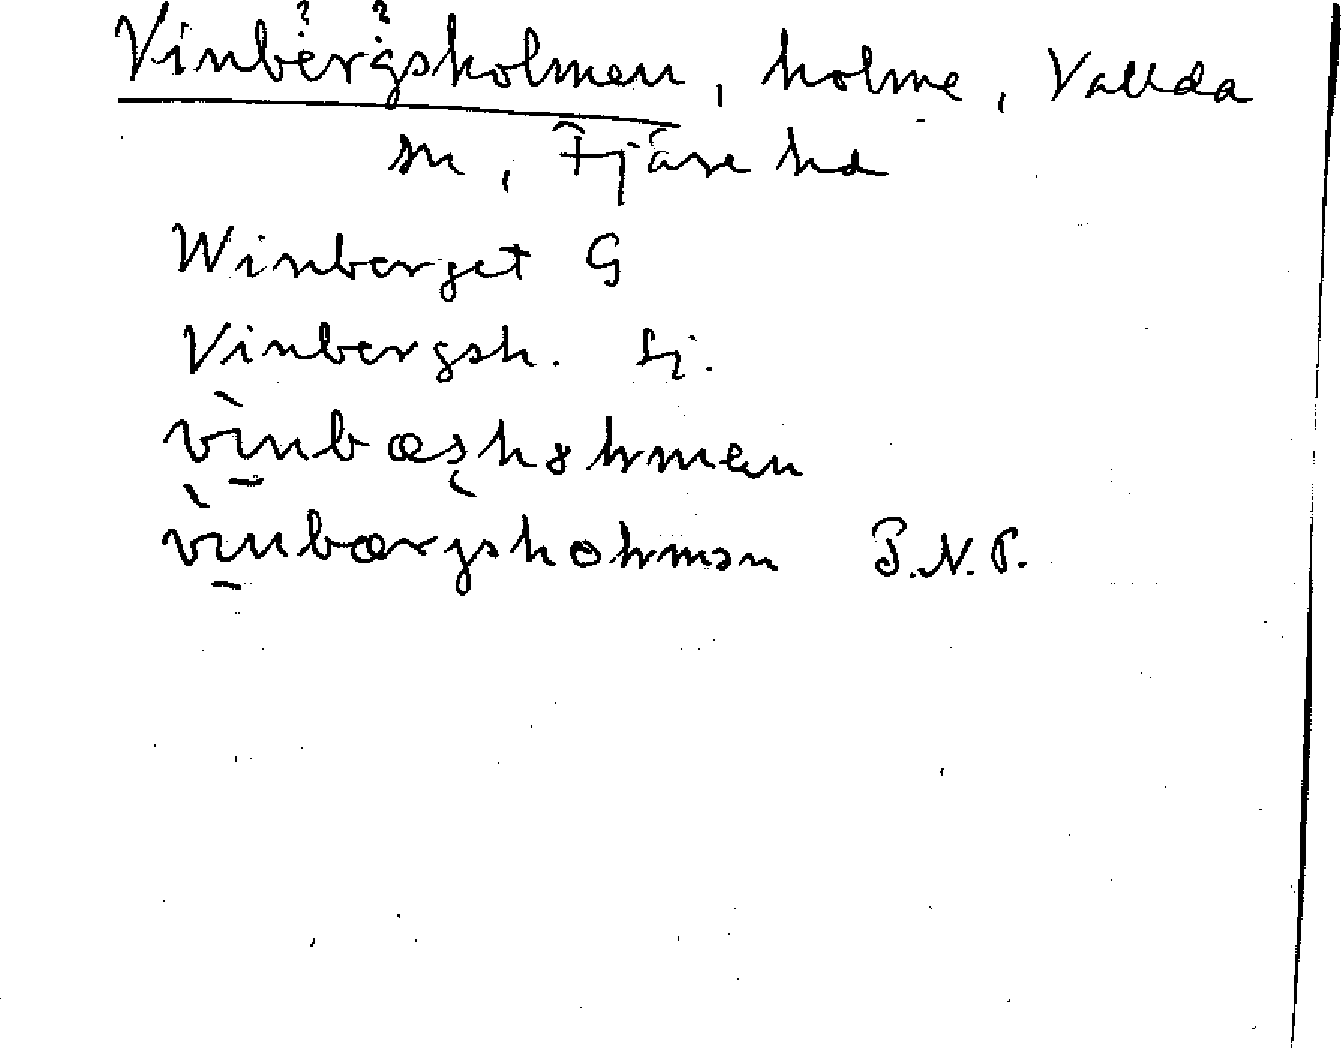 Vinbergsholmen, holme, Vallda
sn, Fjäre hd
Winberget G
Vinbergsh. Lj.
vinbæsholmen
vinbærgsholmən P.N.P.